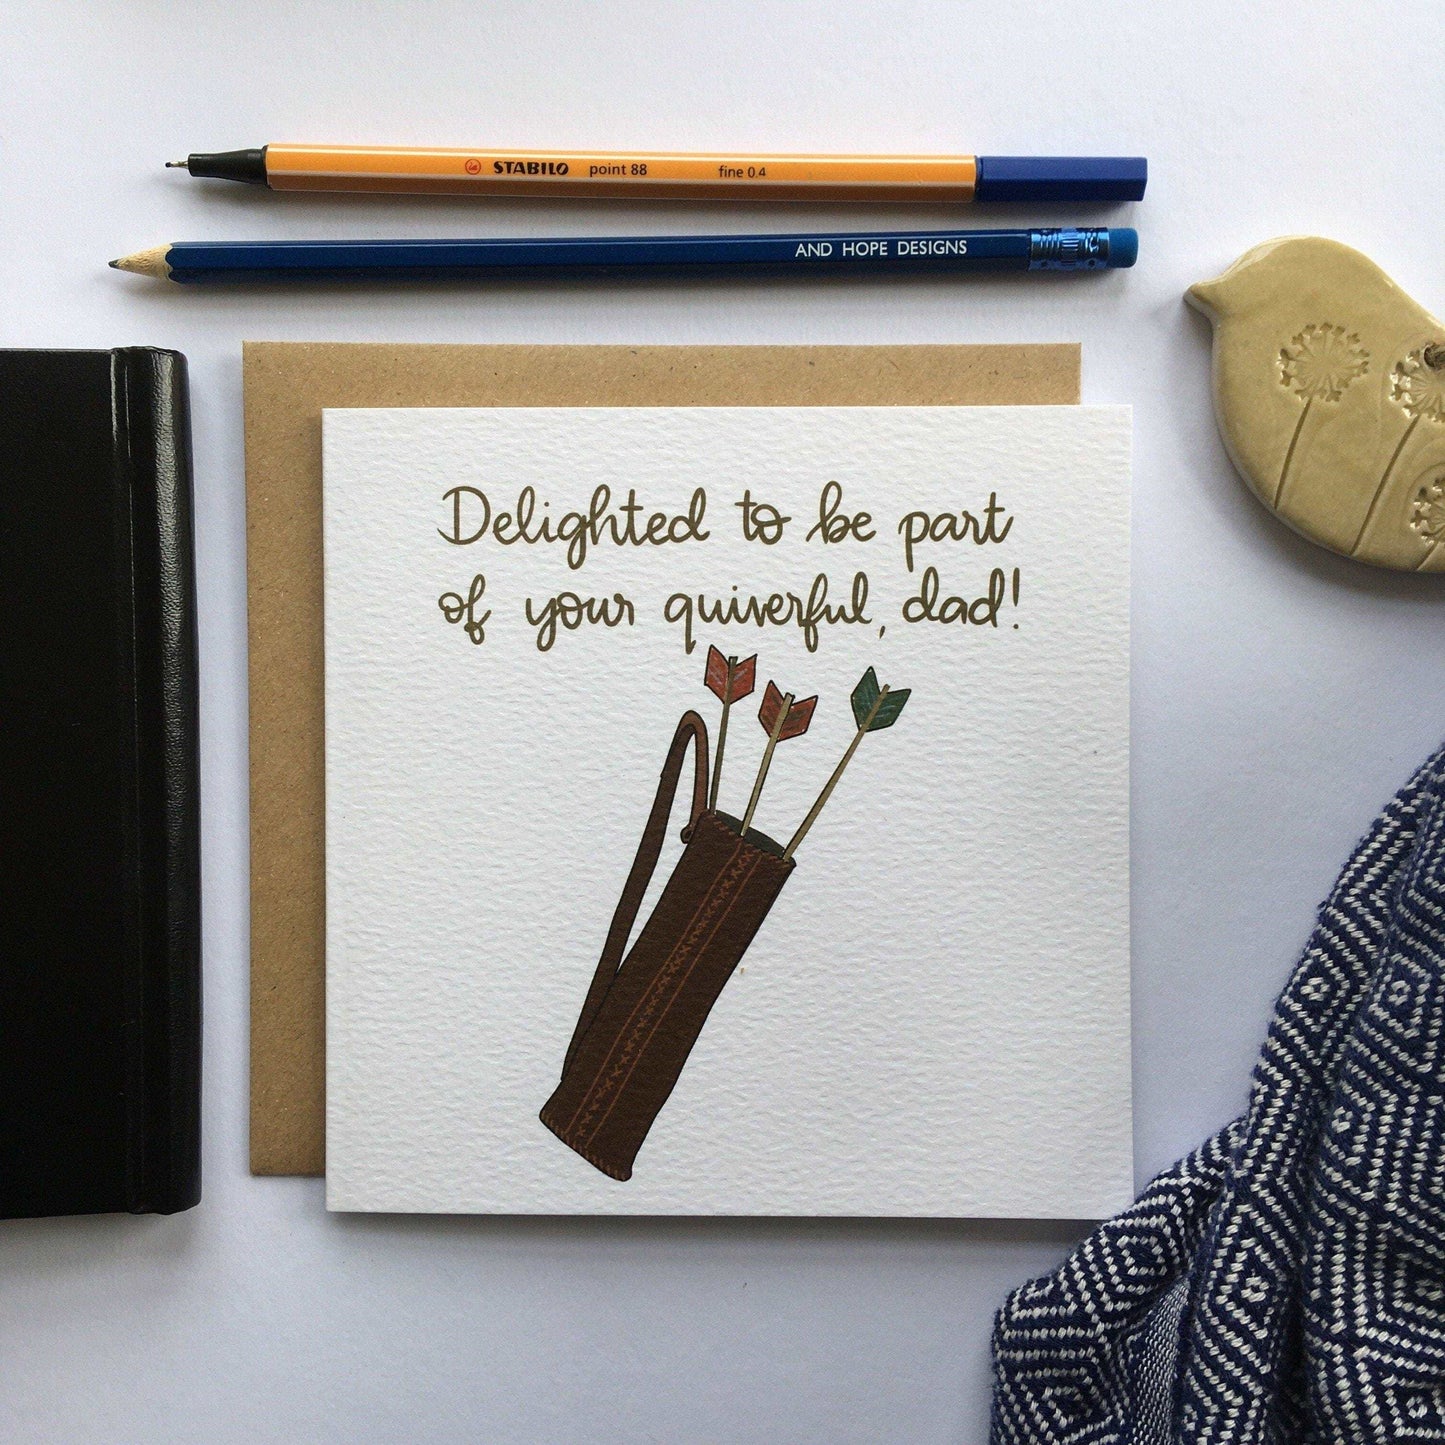 STABILO point 88 fine 0.4
AND HOPE DESIGNS
Delighted to be part
of your quiverful, dad!